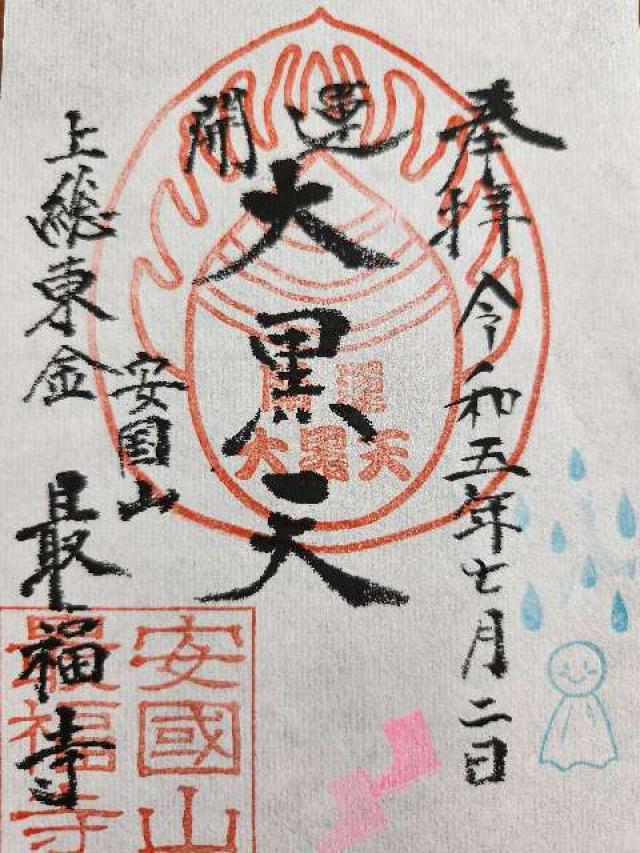 奉拝
令和五年七月二日
開運
大黒天
開運
大黒天
上総東金
安国山
最福寺
安國山
最福寺